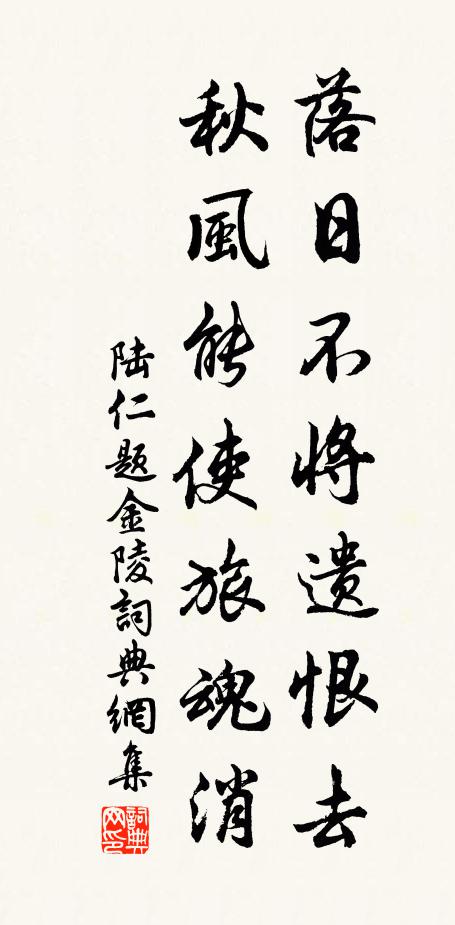 落日不將遺恨去
秋風能使旅魂消
陆仁题金陵詞典網集
詞典網印